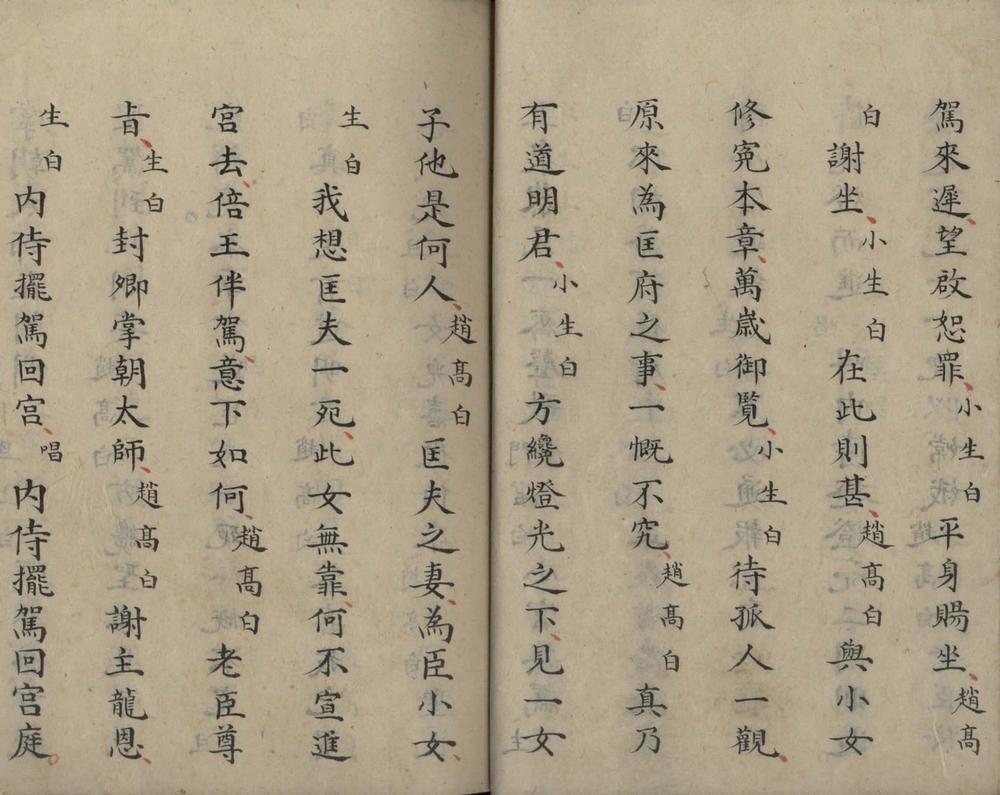 駕來遲、望啟恕罪、小生白平身賜坐、趙高
白謝坐、小生白在此則甚、趙高白與小女
修寃本章、萬歲御覧、小生白待孤人一觀、
原來為匡府之事、一慨不究、趙高白真乃
有道明君、小生白方纔燈光之下、見一女
子他是何人、趙高白匡夫之妻、為臣小女、
生白我想匡夫一死、此女無靠、何不宣進
宮去、倍王伴駕、意下如何、趙高白老臣尊
旨、生白封卿掌朝太師、趙高白謝主龍恩、
生白内侍擺駕回宮、唱内侍擺駕回宮庭。